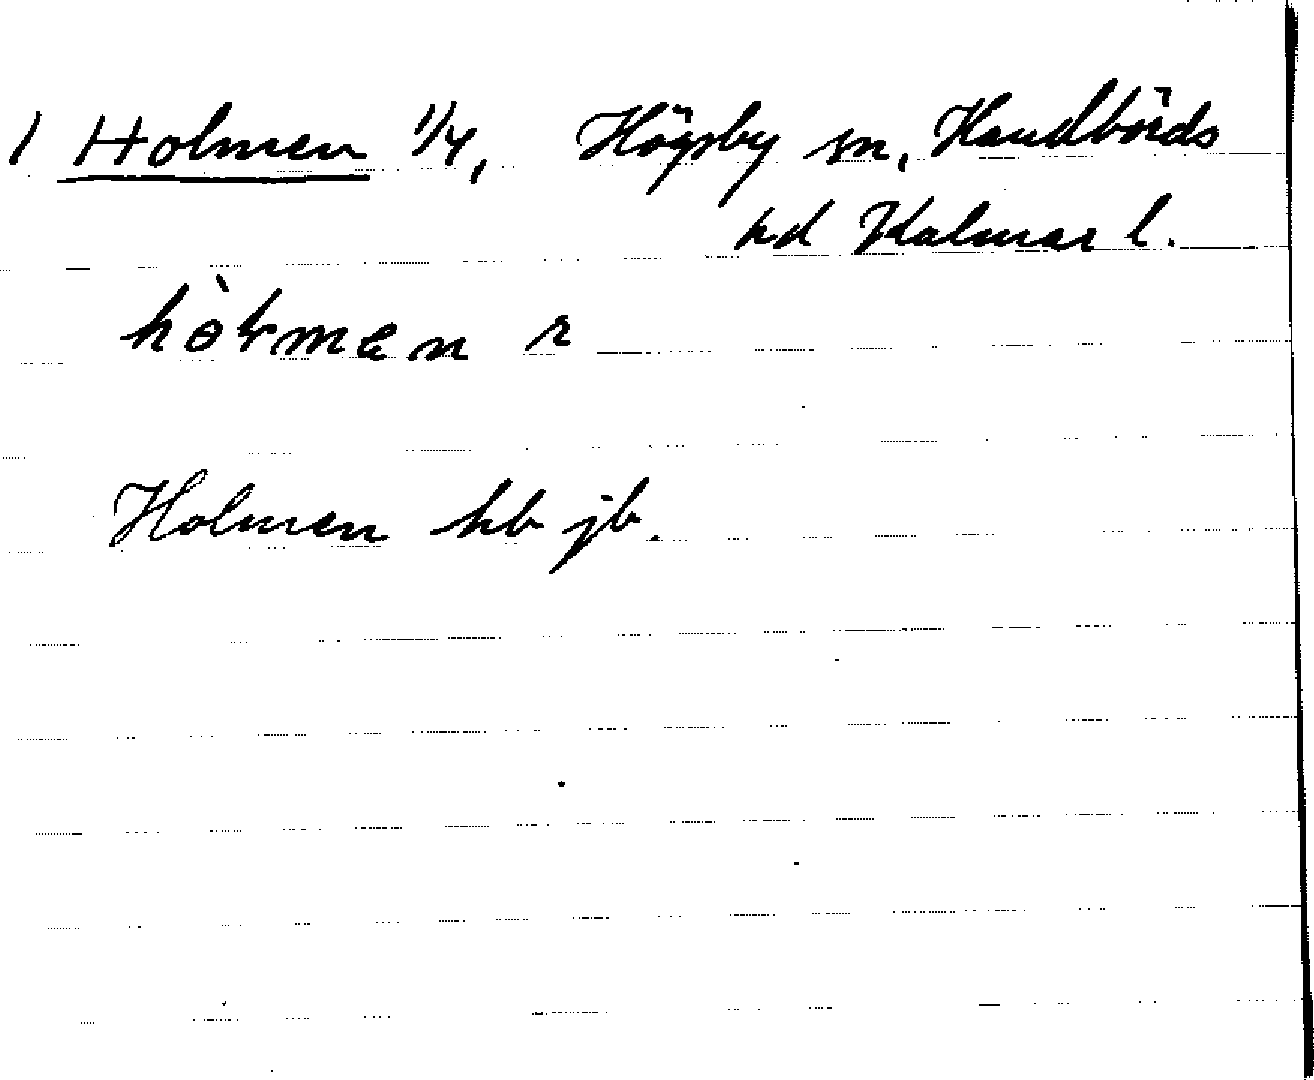 1 Holmen 1/4, Högsby sn, Handbörds
hd Kalmar l.
Holmen hb jb.